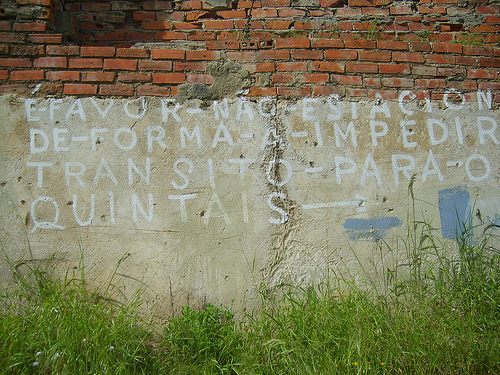 E-FAVOR-NÃO-ESTACIÓN
DE-FORMA-A-IMPEDIR
TRANSITO-PARA-O
QUINTAIS→